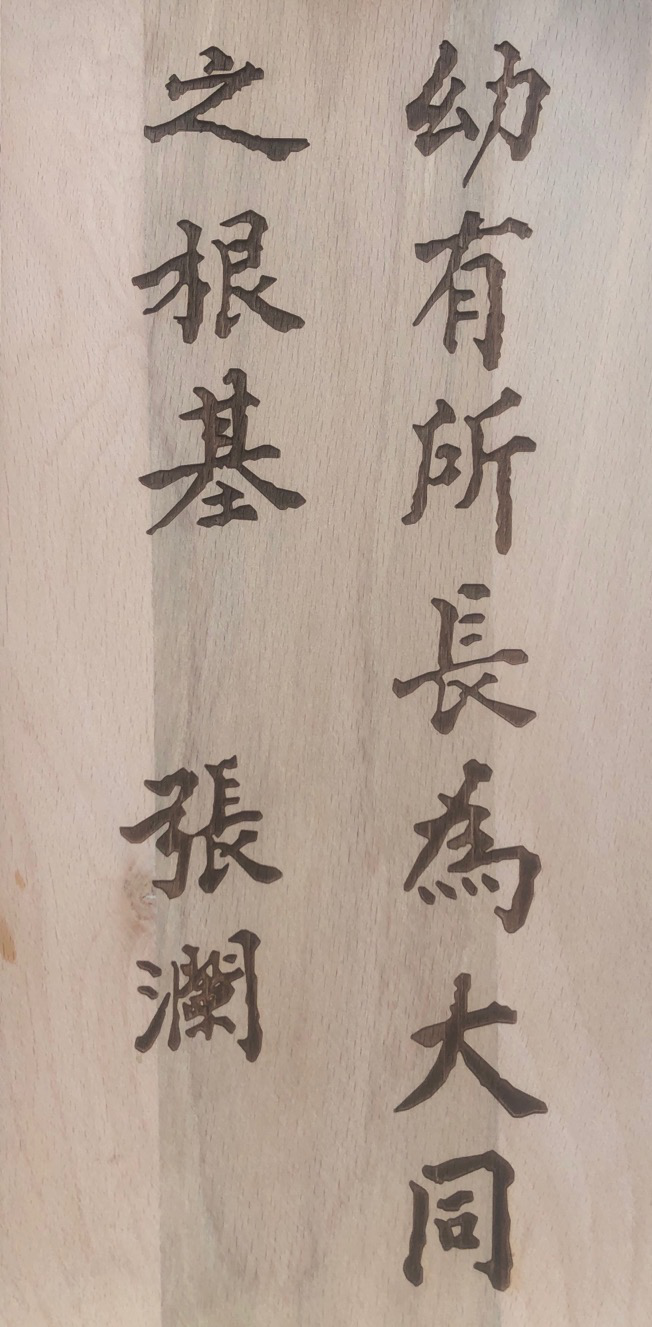 幼有所長為大同
之根基 張瀾